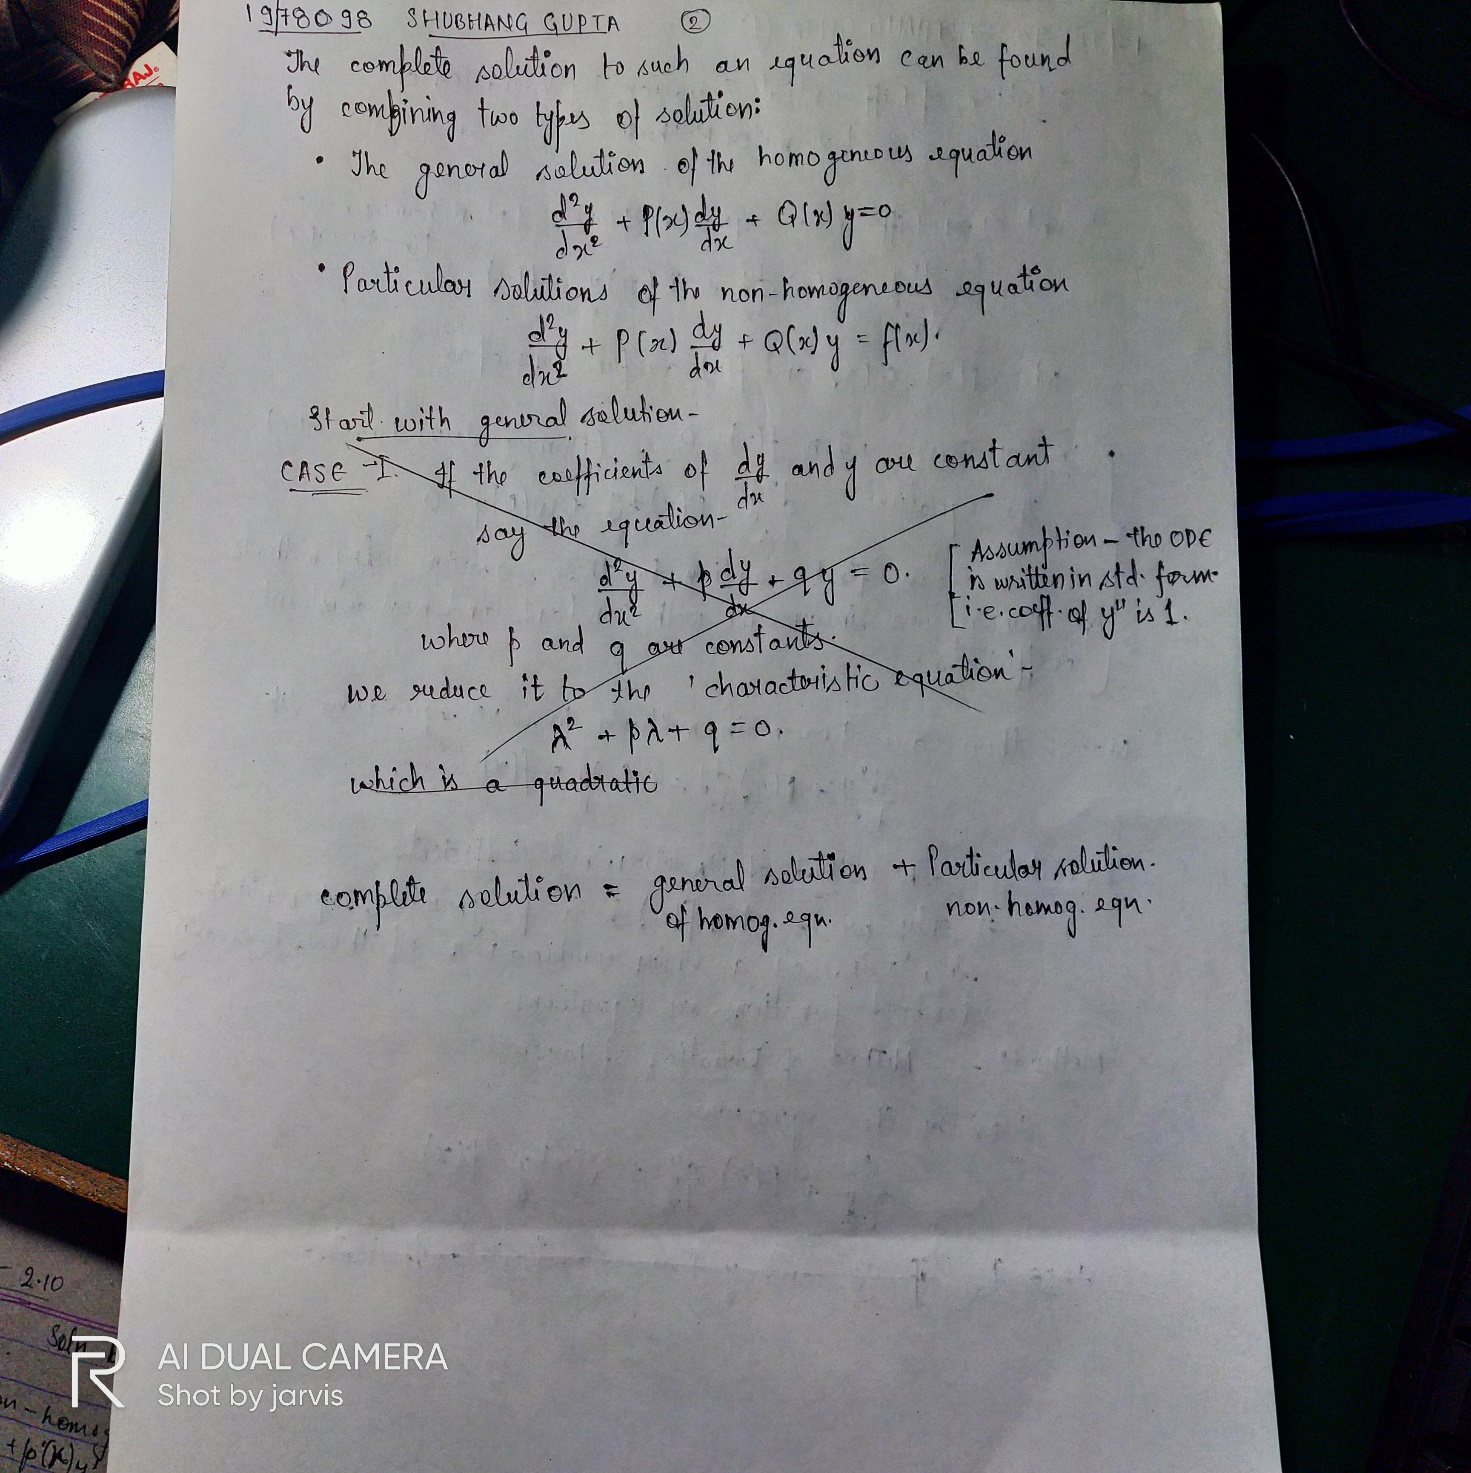 1978098 SHUBHANG GUPTA ②
The complete solution to such an equation can be found
by combining two types of solution:
• The general solution of the homogeneous equation
d²y/dx² + P(x) dy/dx + Q(x) y = 0
• Particular solutions of the non-homogeneous equation
d²y/dx² + P(x) dy/dx + Q(x) y = f(x).
Start with general solution-
CASE-I. If the coefficients of dy/dx and y are constant
say the equation-
d²y/dx² + p dy/dx + qy = 0.
[Assumption - the ODE
is written in std. form.
i.e. coff. of y" is 1.
where p and q are constants.
we reduce it to the 'characteristic equation'-
λ² + pλ + q = 0.
which is a quadratic
complete solution = general solution + Particular solution.
of homog. eqn. non-homog. eqn.
RAJ.
2.10
Soln
- homo
+ p(x) y
AI DUAL CAMERA
Shot by jarvis